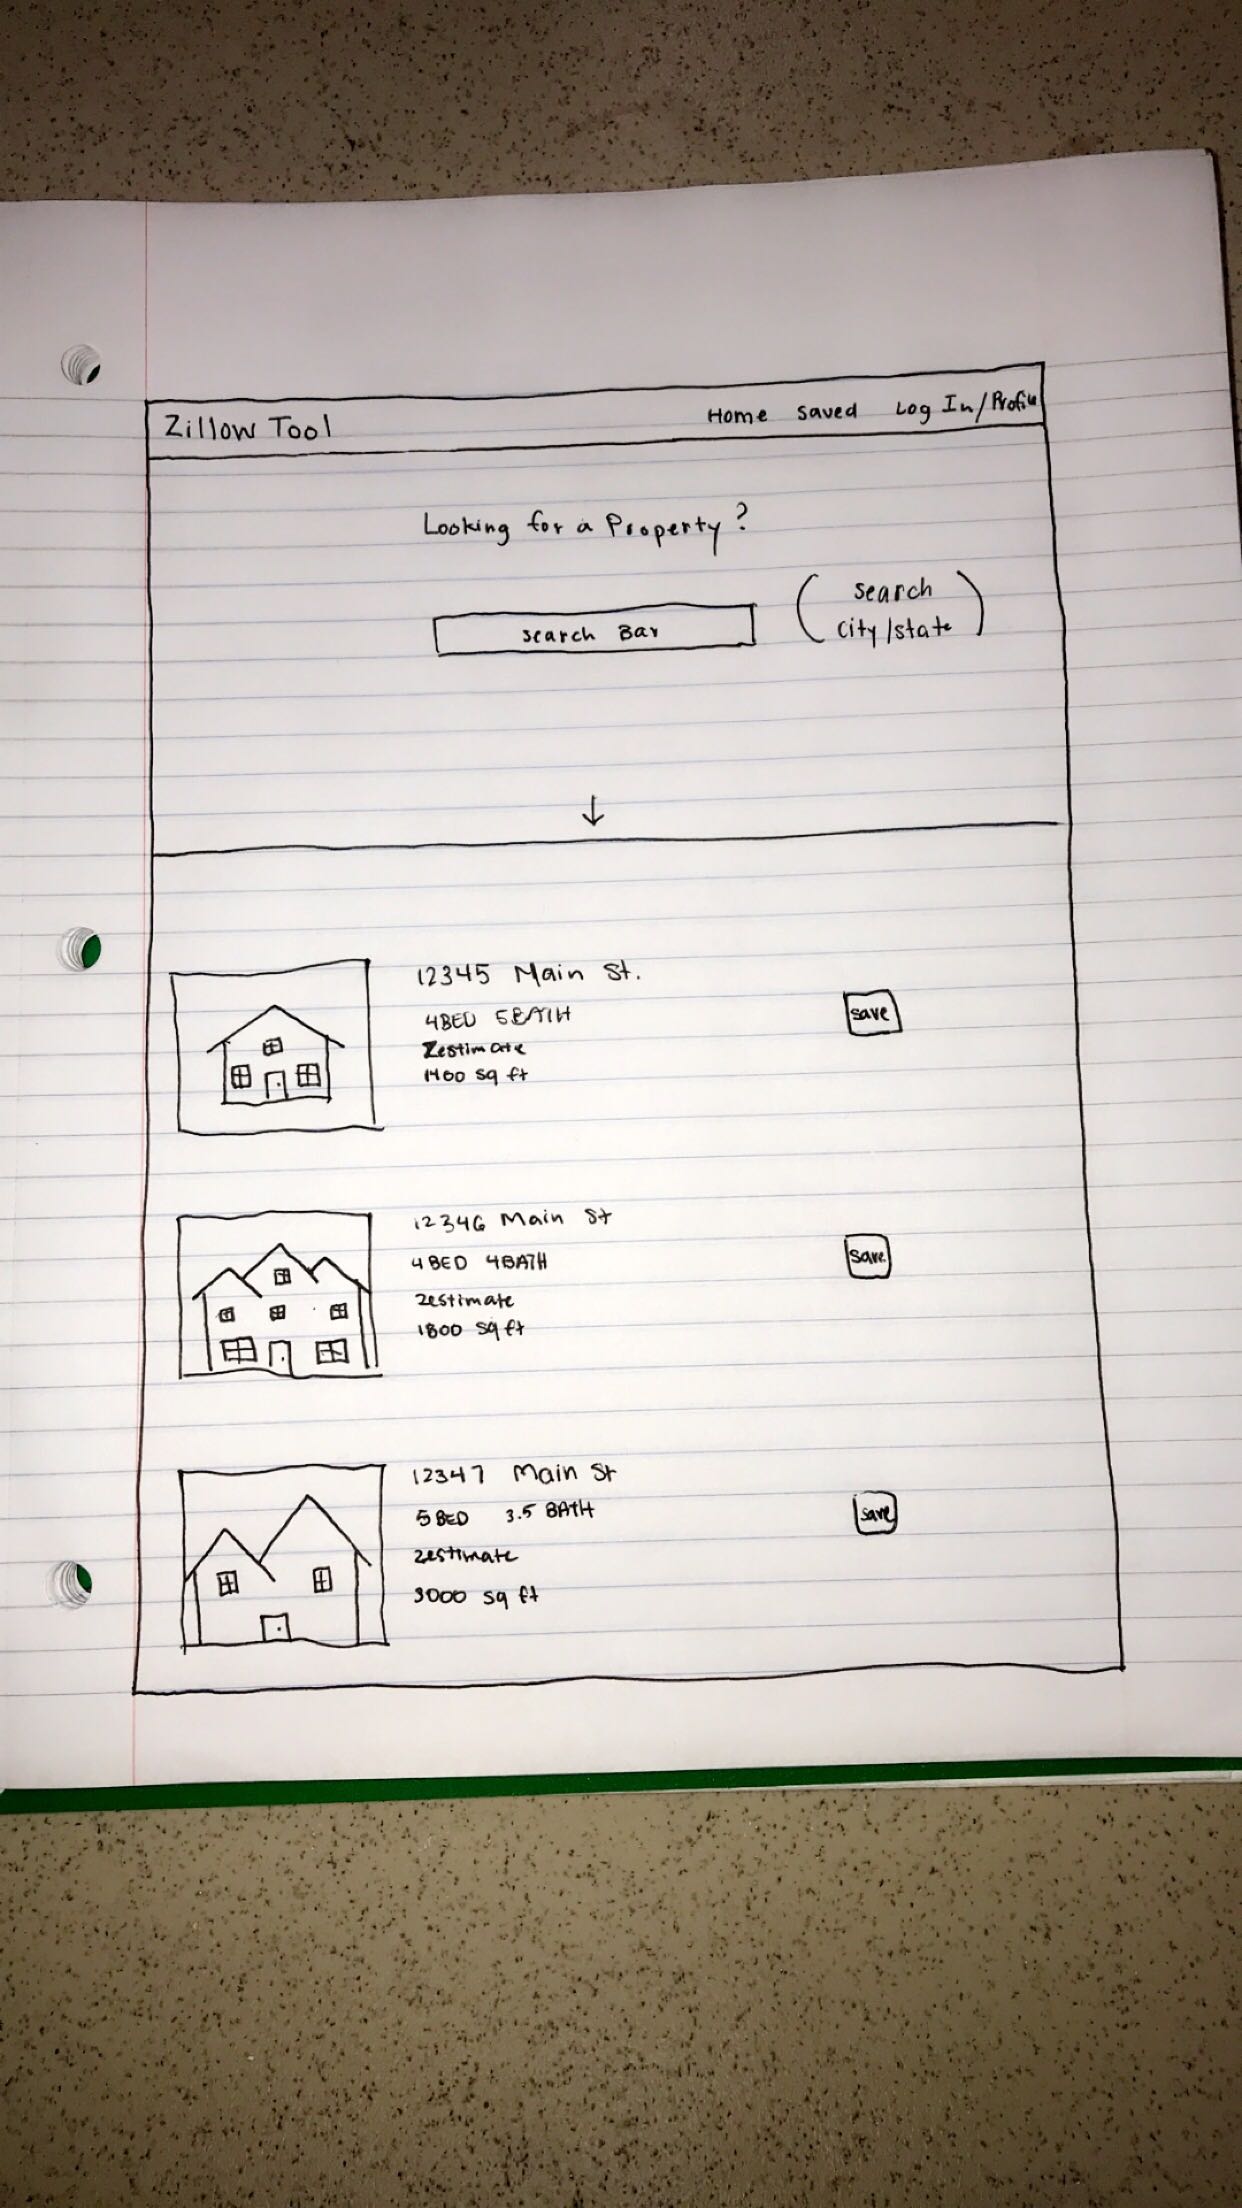 Zillow Tool Home Saved Log In/Profile
Looking for a Property?
Search Bar
(search
city/state)
12345 Main St.
4BED 5BATH
Zestimate
1400 sq ft
save
12346 Main St
4 BED 4BATH
zestimate
1800 sq ft
save
12347 Main St
5 BED 3.5 BATH
zestimate
3000 sq ft
save